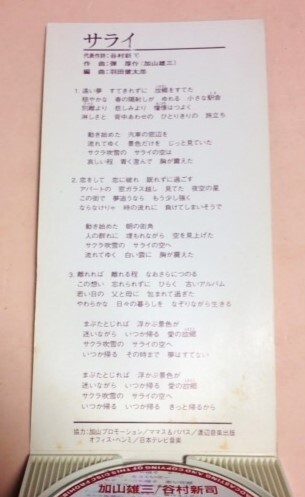 サライ
代表作詞:谷村新司
作曲:弾 厚作(加山雄三)
編曲:羽田健太郎
1.遠い夢 すてきれずに 故郷をすてた
穏やかな 春の陽射しが ゆれる 小さな駅舎
別離より 悲しみより 憧憬はつよく
淋しさと 背中あわせの ひとりきりの 旅立ち
動き始めた 汽車の窓辺を
流れてゆく 景色だけを じっと見ていた
サクラ吹雪の サライの空は
哀しい程 青く澄んで 胸が震えた
2.恋をして 恋に破れ 眠れずに過ごす
アパートの 窓ガラス越し 見てた 夜空の星
この街で 夢追うなら もう少し強く
ならなけりゃ 時の流れに 負けてしまいそうで
動き始めた 朝の街角
人の群れに 埋もれながら 空を見上げた
サクラ吹雪の サライの空へ
流れてゆく 白い雲に 胸が震えた
3.離れれば 離れる程 なおさらにつのる
この想い 忘れられずに ひらく 古いアルバム
若い日の 父と母に 包まれて過ぎた
やわらかな 日々の暮らしを なぞりながら生きる
まぶたとじれば 浮かぶ景色が
迷いながら いつか帰る 愛の故郷
サクラ吹雪の サライの空へ
いつか帰る その時まで 夢はすてない
まぶたとじれば 浮かぶ景色が
迷いながら いつか帰る 愛の故郷
サクラ吹雪の サライの空へ
いつか帰る いつか帰る きっと帰るから
協力:加山プロモーション/ママス&パパス/渡辺音楽出版
オフィス・ヘンミ/日本テレビ音楽
AND COPYING OF THIS
加山雄三/谷村新司